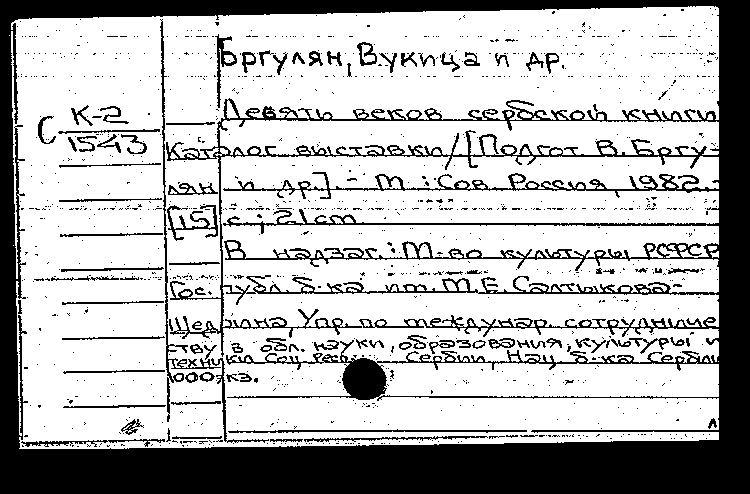 Бргулян, Вукица и др.
Девять веков сербской книги
С К-2
1543
Каталог выставки / [Подгот В. Бргу-
лян и др.]. - М : Сов. Россия, 1982.-
[15] с ; 21 cm
В надзаг. : М-во культуры РСФСР
Гос. публ. б-ка им. М.Е. Салтыкова-
Щедрина, Упр. по междунар. сотрудниче
ству в обл. науки, образования, культуры и
техники Соц Респ. Сербии, Нац б-ка Сербии
1000экз.